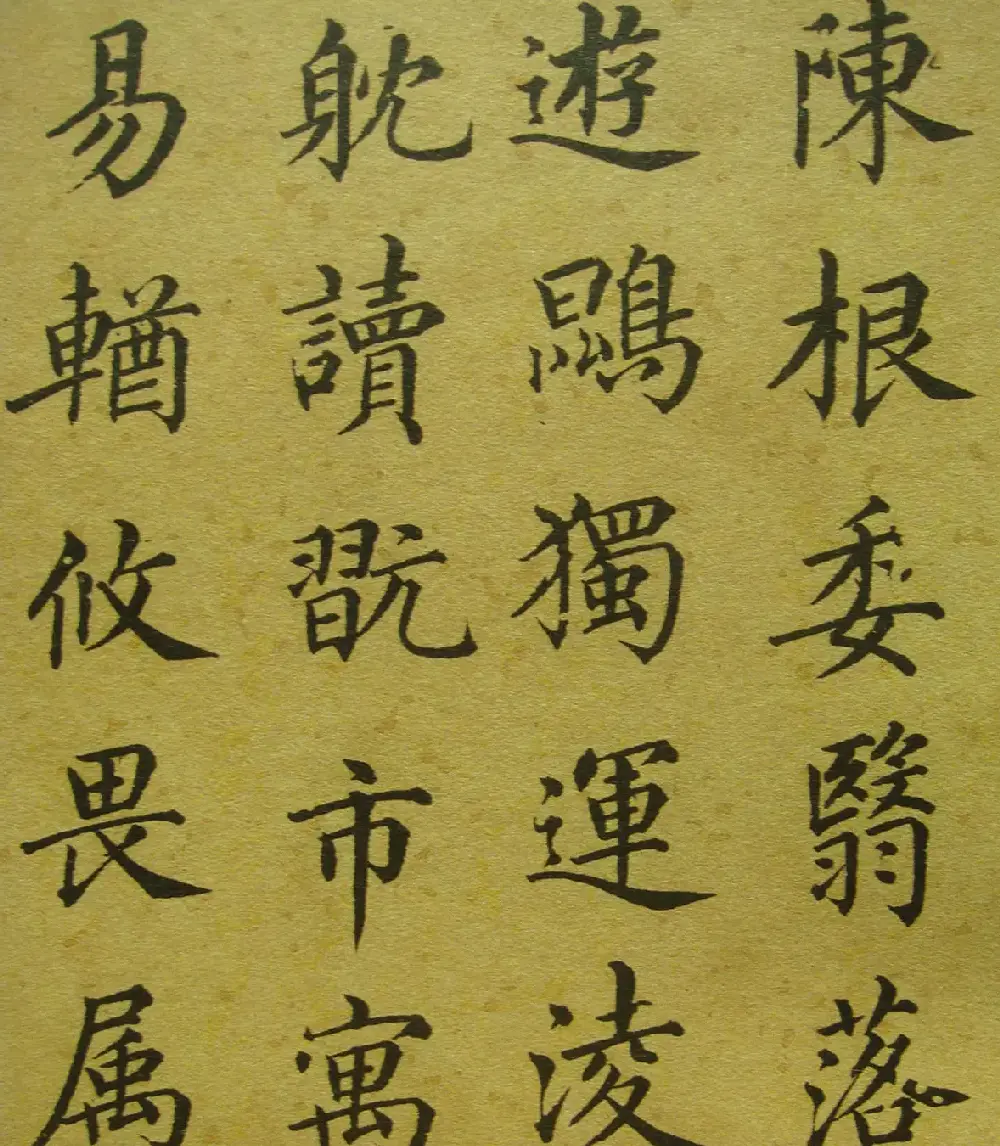 陳根委翳落
遊鵾獨運淩
躭讀翫市寓
易輶攸畏属